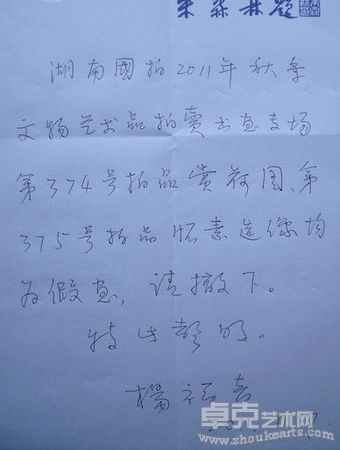 朱森林題
湖南國拍2011年秋季
文物艺术品拍賣书画专场
第374号拍品賞荷图、第
375号拍品怀素造像均
为假画，请撤下。
特此聲明。
楊福音
卓克艺术网
www.zhoukearts.com